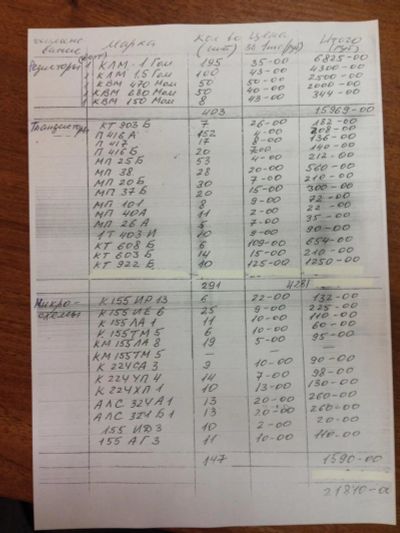 Наимено- Марка Кол-во Цена Итого
вание (шт) за 1шт(руб) (руб)
Резисторы 1 КЛМ - 1 Гом 195 35-00 6825-00
1 КЛМ 1,5 Гом 100 43-00 4300-00
1 КВМ 470 Мом 50 50-00 2500-00
1 КВМ 680 Мом 50 40-00 2000-00
1 КВМ 150 Мом 8 43-00 344-00
403 15969-00
Транзисторы КТ 903 Б 7 26-00 182-00
П 416 А 152 4-00
П 417 17 8-00 136-00
П 416 Б 20 140-00
МП 25 Б 53 4-00 212-00
МП 38 28 20-00 560-00
МП 20 Б 30 7-00 210-00
МП 37 Б 20 15-00 300-00
МП 101 8 9-00 72-00
МП 40А 11 2-00 22-00
МП 26 А 5 7-00 35-00
1Т 403 И 10 9-00 90-00
КТ 608 Б 6 109-00 654-00
КТ 603 Б 14 15-00 210-00
КТ 922 Б 10 125-00 1250-00
291 4281
Микро- К 155 ИР 13 6 22-00 132-00
схемы К 155 ИЕ 6 25 9-00 225-00
К 155 ЛА 1 11 10-00 110-00
К 155 ТМ 5 6 10-00 60-00
КМ 155 ЛА 8 19 5-00 95-00
КМ 155 ТМ 5 — — —
К 224 СА 3 9 10-00 90-00
К 224 УП 4 14 7-00 98-00
К 224 ХП 1 10 13-00 130-00
АЛС 324 А1 13 20-00 260-00
АЛС 324 Б 1 13 20-00 260-00
155 ИД 3 10 2-00 20-00
155 АГ 3 11 10-00 110-00
147 1590-00
21840-00